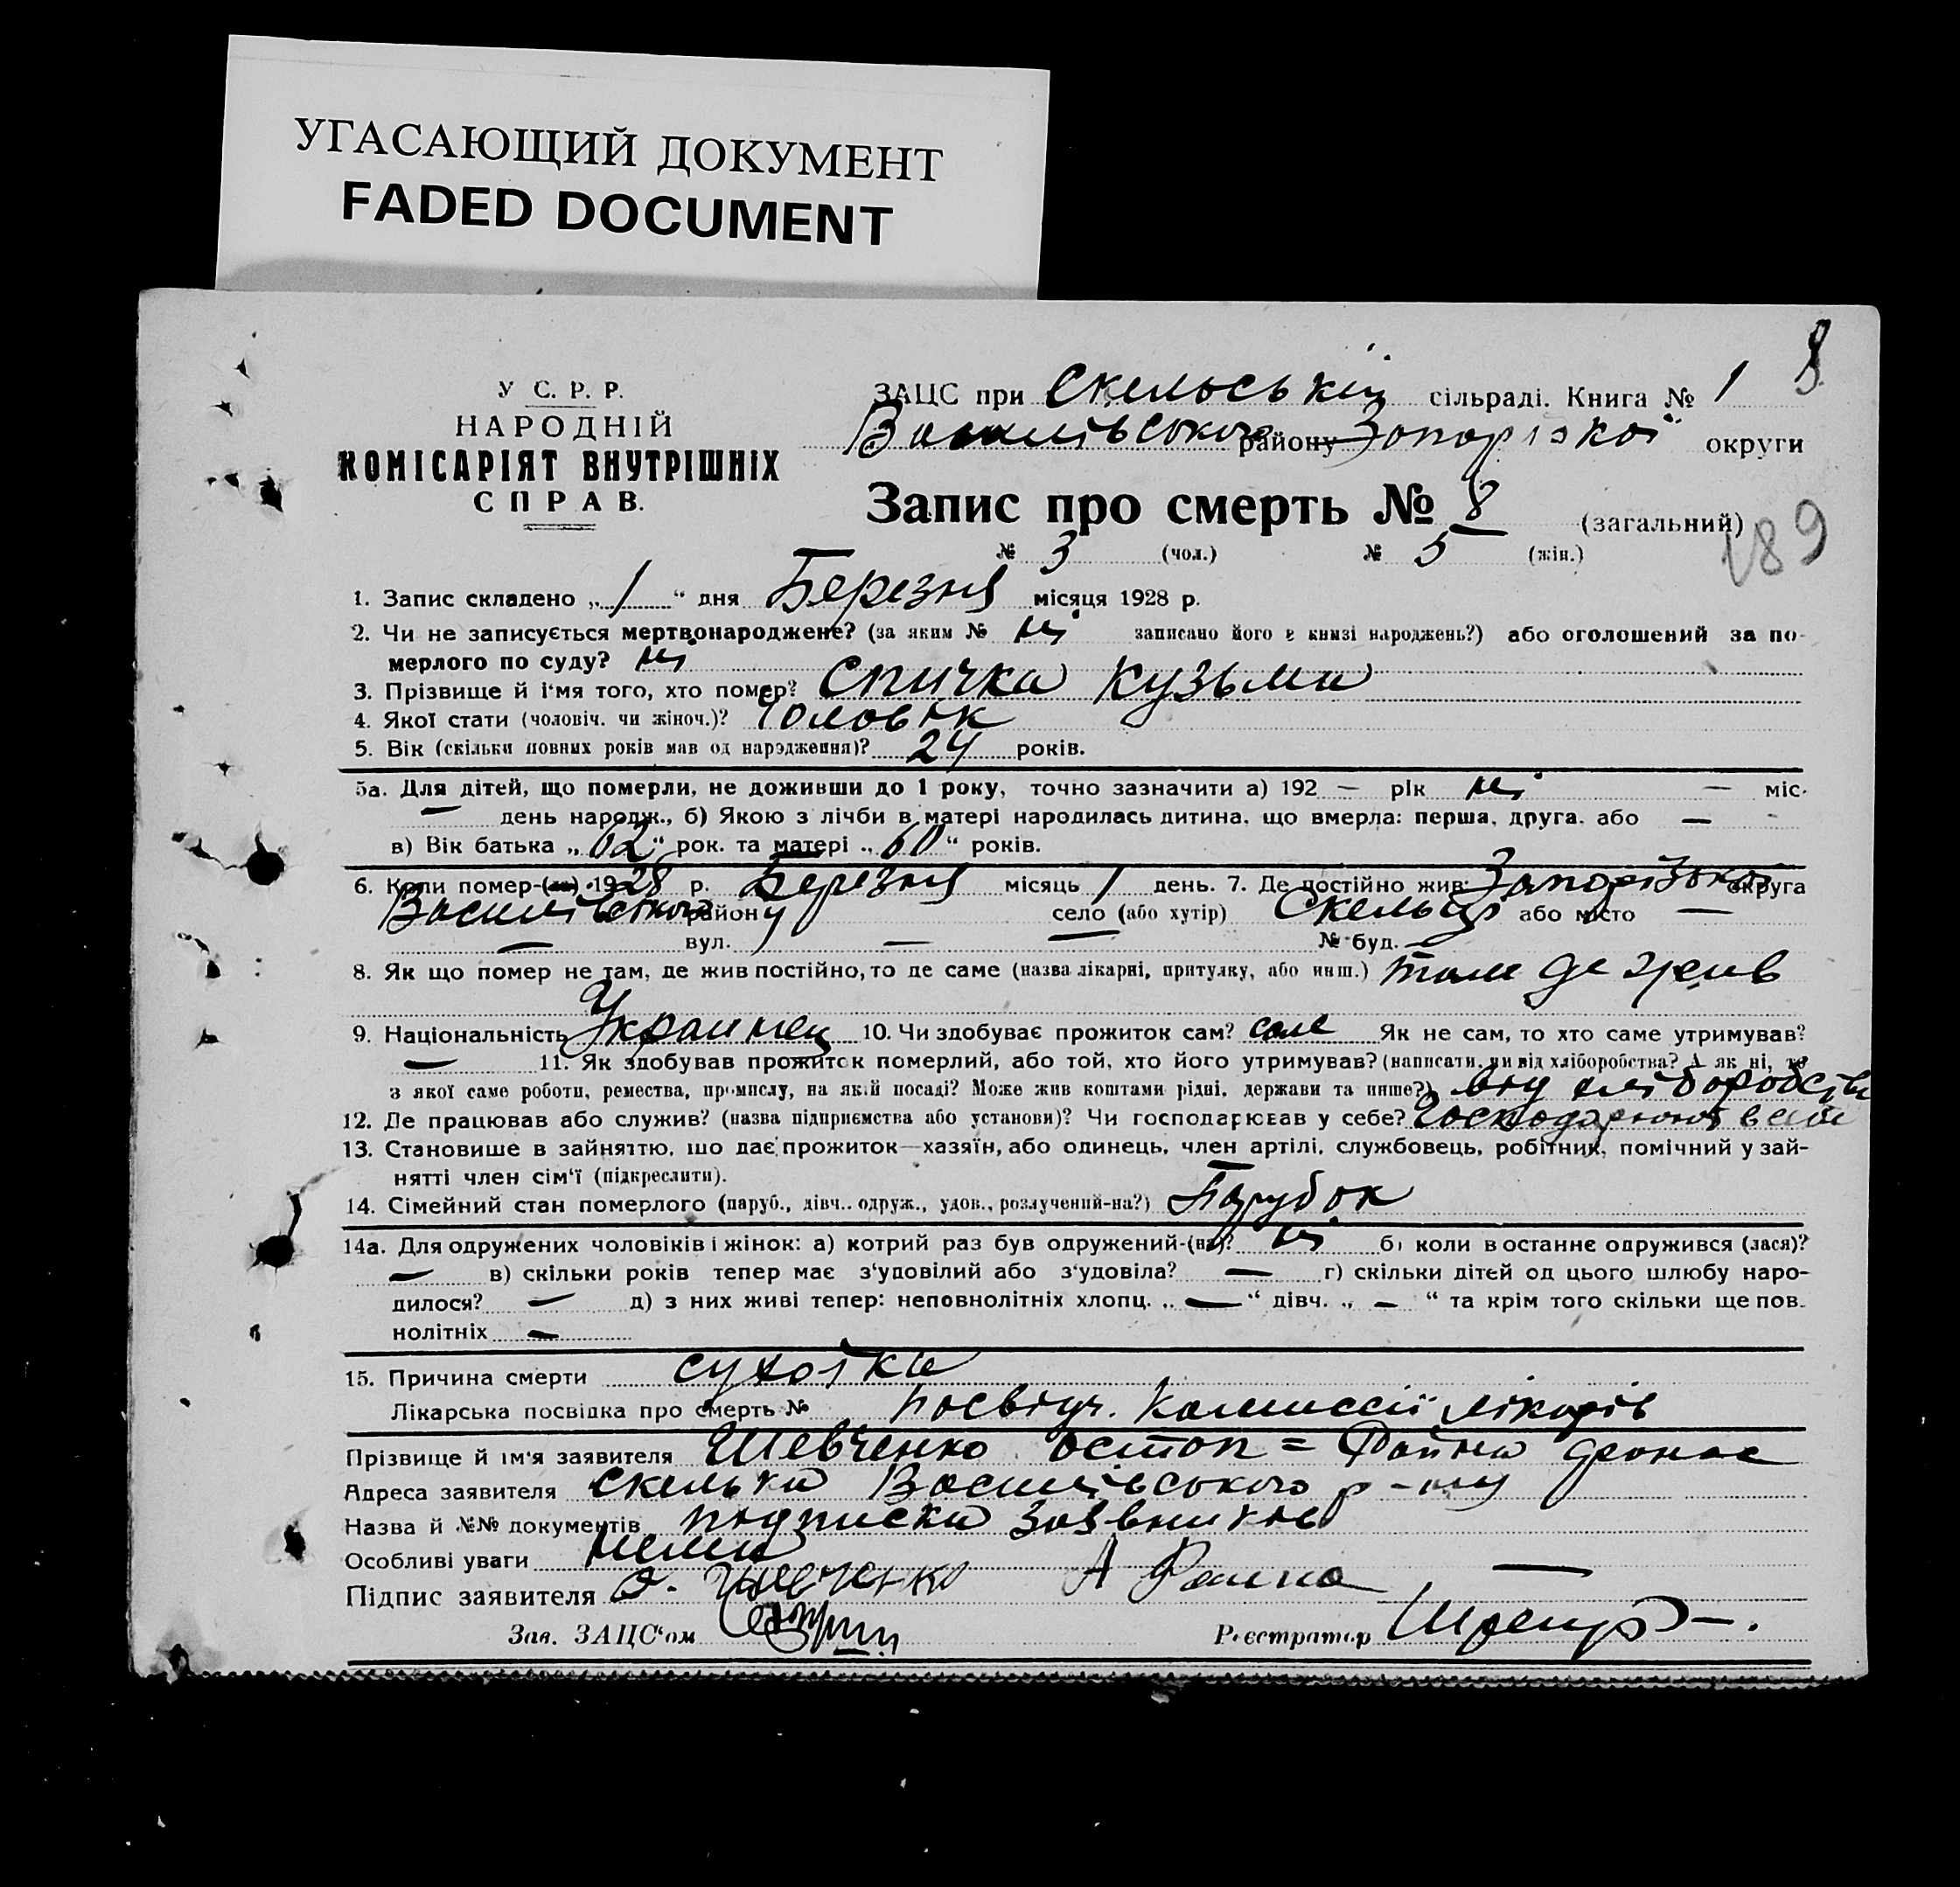 УГАСАЮЩИЙ ДОКУМЕНТ
FADED DOCUMENT
8
У С. Р. Р.
НАРОДНІЙ
КОМІСАРІЯТ ВНУТРІШНІХ
СПРАВ.
ЗАЦС при Скельській сільраді. Книга № 1
Василівського району Запорізкої округи
Запис про смерть № 8 (загальний)
№ 3 (чол.) № 5 (жін.)
189
1. Запис складено „ 1 “ дня Березня місяця 1928 р.
2. Чи не записується мертвонароджене? (за яким № ні записано його в книзі народжень?) або оголошений за по-
мерлого по суду? ні
3. Прізвище й і‘мя того, хто помер? Спичка Кузьма
4. Якої стати (чоловіч. чи жіноч.)? Чоловік
5. Вік (скільки повних років мав од народження)? 24 років.
5а. Для дітей, що померли, не доживши до 1 року, точно зазначити а) 192 — рік ні — міс.
— день народж., б) Якою з лічби в матері народилась дитина, що вмерла: перша, друга, або —
в) Вік батька „ 62 “ рок. та матері „ 60 “ років.
6. Коли помер-(ла) 1928 р. Березня місяць 1 день. 7. Де постійно жив: Запорізької округа
Василівського району село (або хутір) Скельці або місто —
— вул. — — № буд. —
8. Як що помер не там, де жив постійно, то де саме (назва лікарні, притулку, або инш.) там де жив
9. Національність Украинец 10. Чи здобуває прожиток сам? сам Як не сам, то хто саме утримував?
— 11. Як здобував прожиток померлий, або той, хто його утримував? (написати, чи від хліборобства? А як ні, то
з якої саме роботи, ремества, промислу, на якій посаді? Може жив коштами рідні, держави та инше?) від хліборобства
12. Де працював або служив? (назва підприємства або установи)? Чи господарював у себе?
13. Становище в зайняттю, що дає прожиток—хазяїн, або одинець, член артілі, службовець, робітник, помічний у зай-
нятті член сім‘ї (підкреслити).
14. Сімейний стан померлого (паруб., дівч.. одруж., удов., розлучений-на?) Парубок
14а. Для одружених чоловіків і жінок: а) котрий раз був одружений-(на)? ні б) коли в останнє одружився (лася)?
— в) скільки років тепер має з‘удовілий або з‘удовіла? — г) скільки дітей од цього шлюбу наро-
дилося? — д) з них живі тепер: неповнолітніх хлопц. „ — “ дівч. „ — “ та крім того скільки ще пов-
нолітніх —
15. Причина смерти сухотка
Лікарська посвідка про смерть № посвідч. Комиссії лікарів
Прізвище й ім‘я заявителя Шевченко Остап =
Адреса заявителя Скелька Василівського р-ну
Назва й №№ документів подписка
Особливі уваги нема
Підпис заявителя О. Шевченко А —
Зав. ЗАЦС‘ом Реєстратор